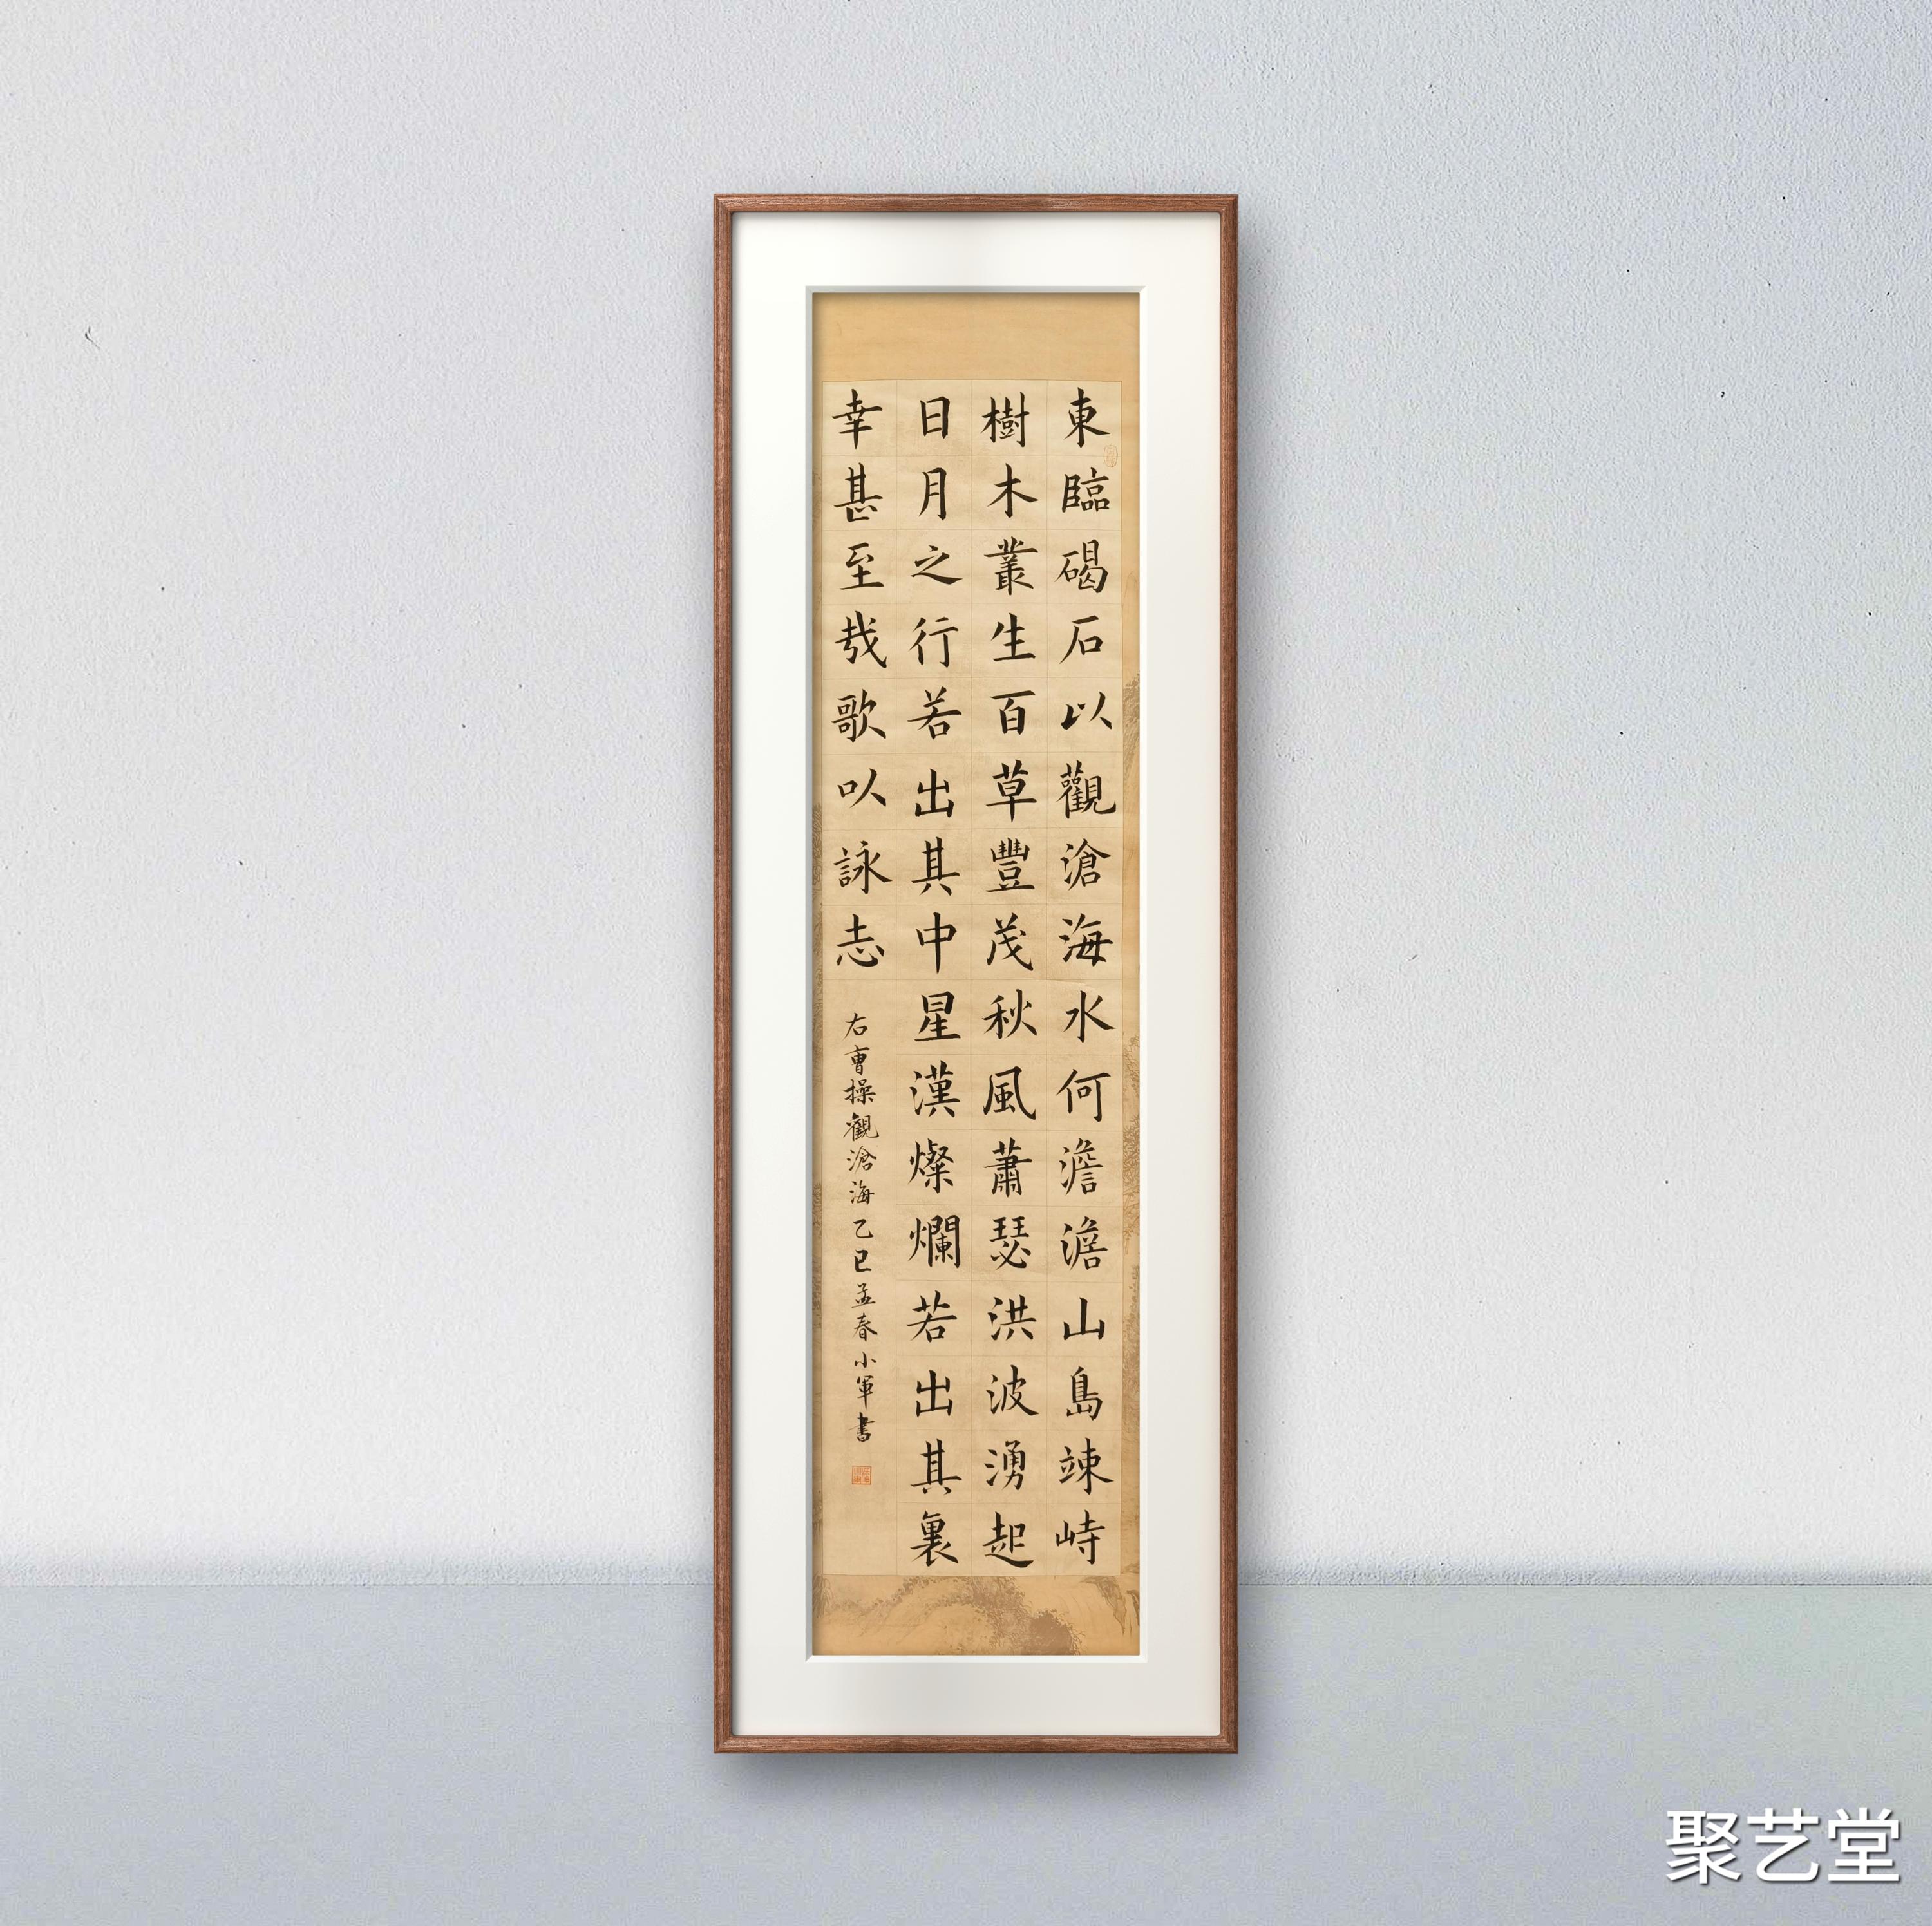 東臨碣石以觀滄海水何澹澹山島竦峙
樹木叢生百草豐茂秋風蕭瑟洪波湧起
日月之行若出其中星漢燦爛若出其裏
幸甚至哉歌以詠志
右曹操觀滄海乙巳孟春小軍書
聚艺堂